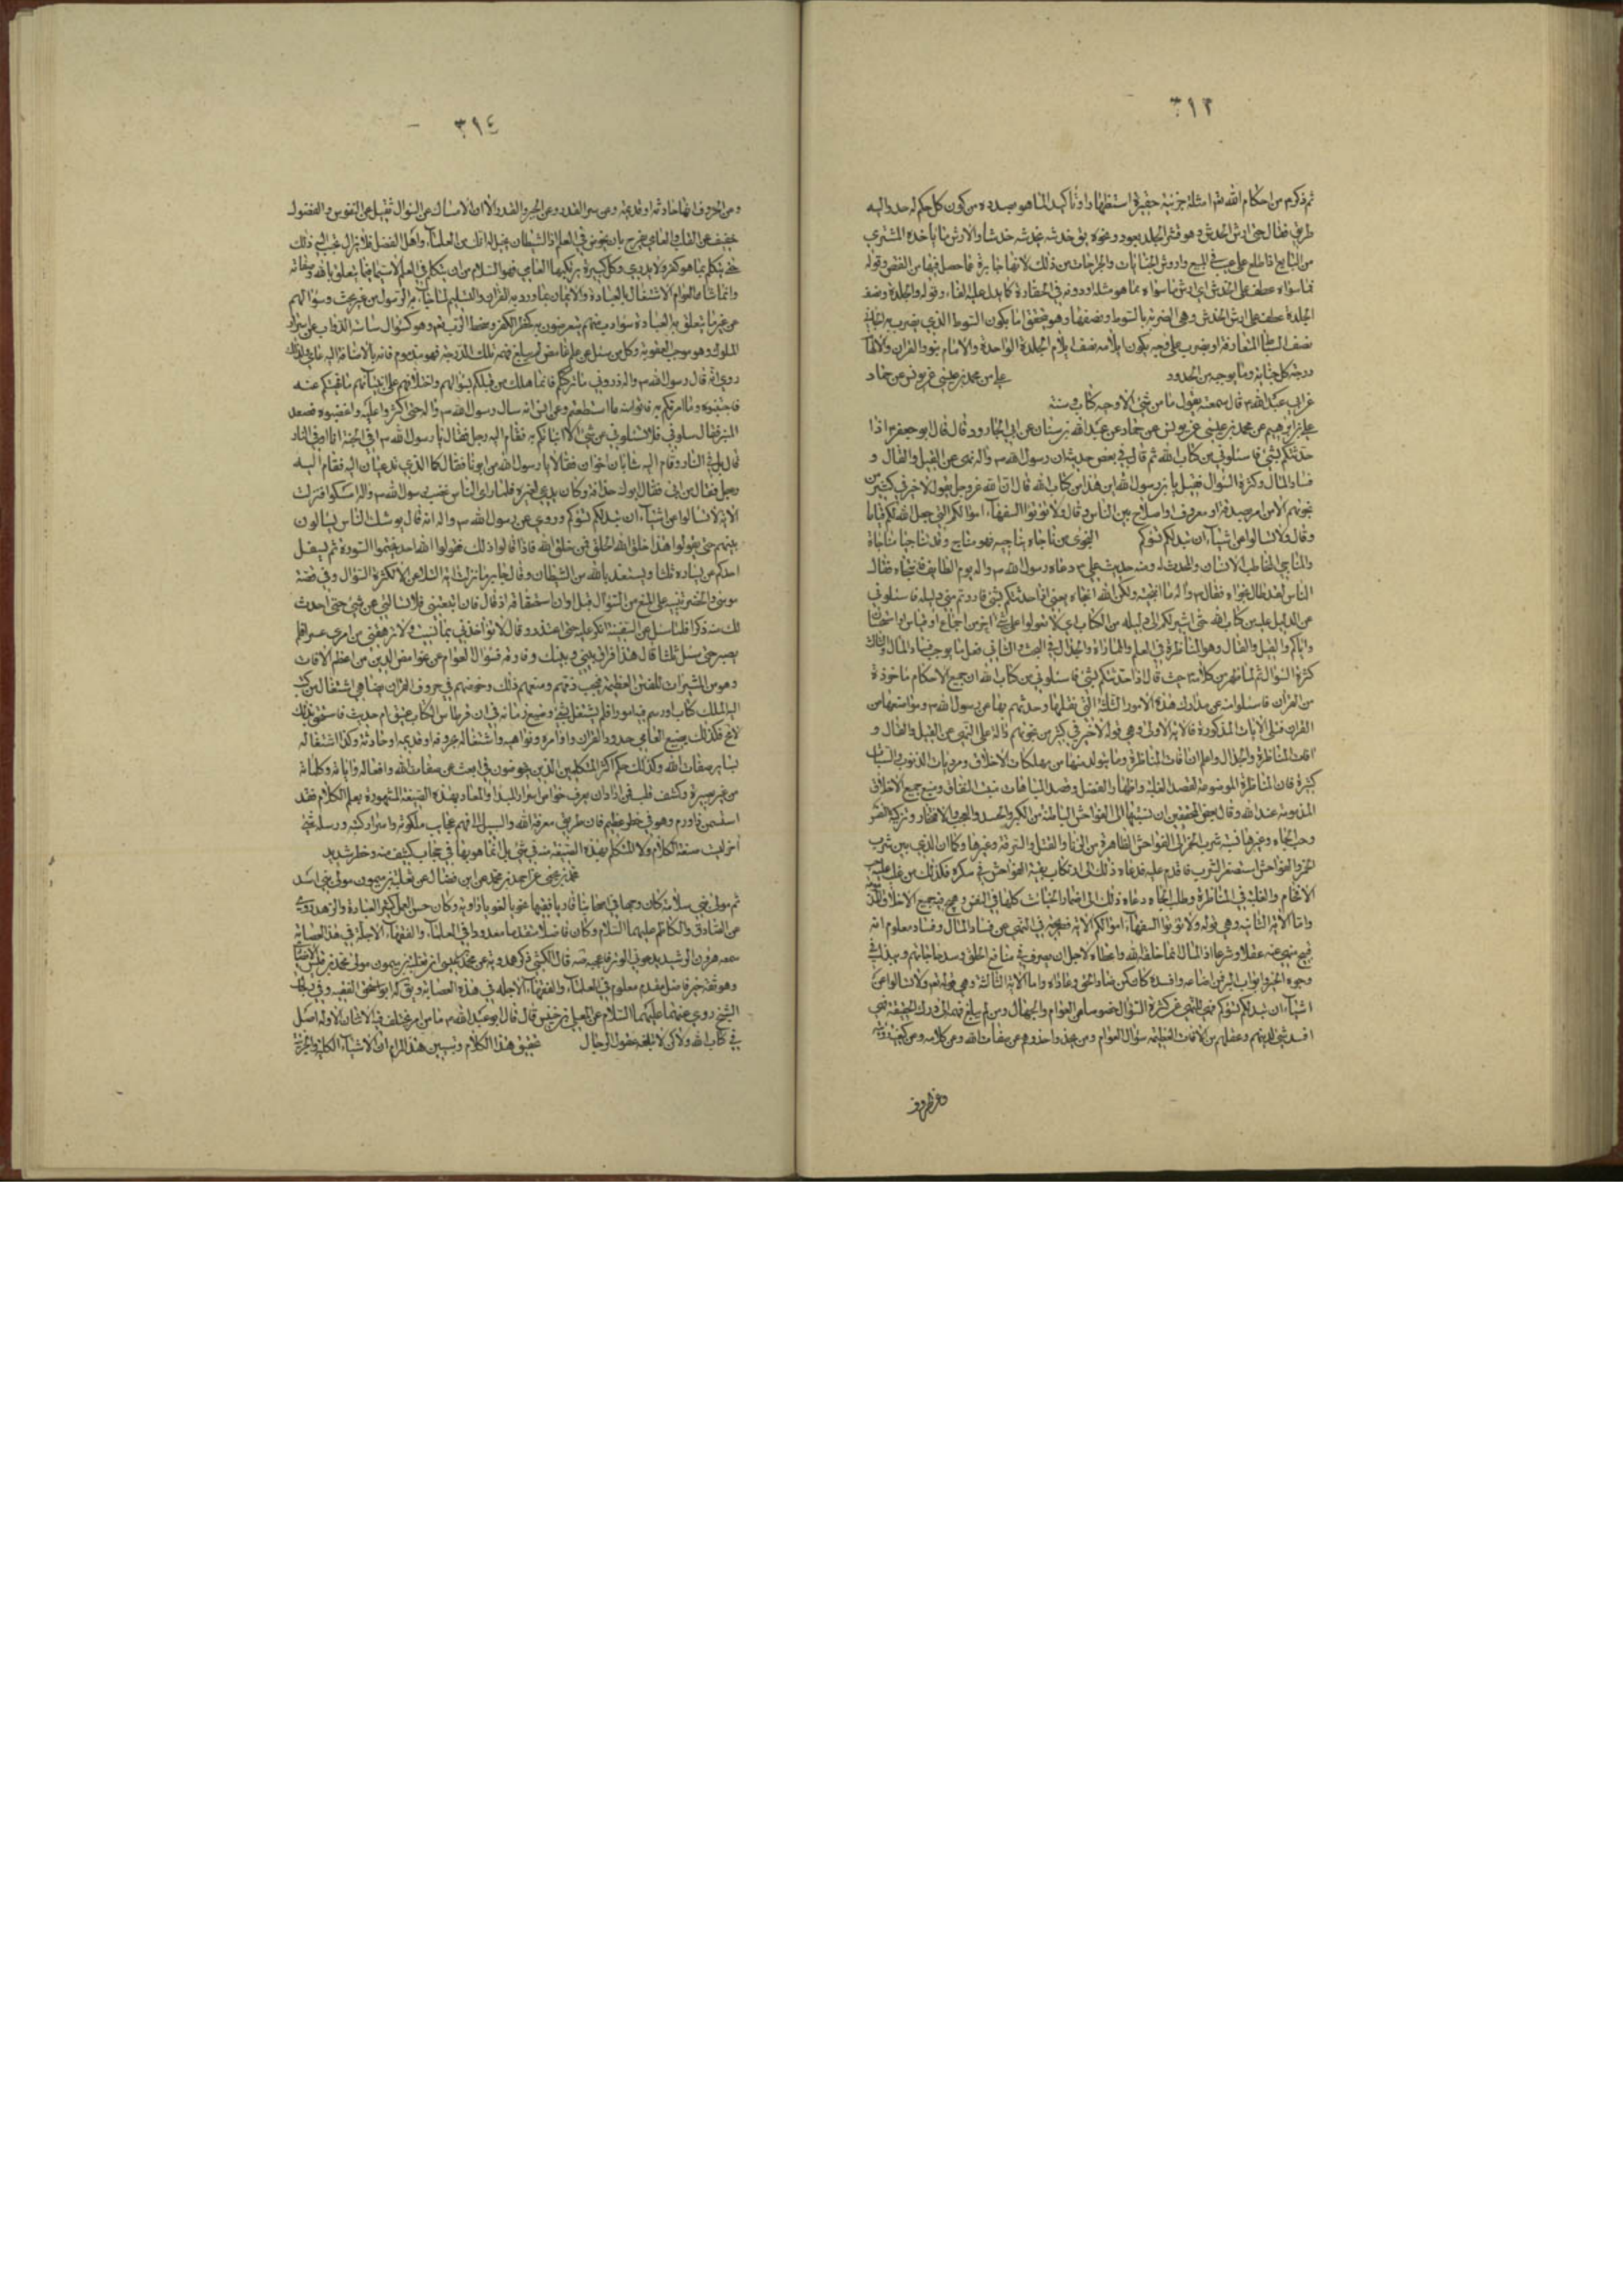 ٣١٣
ثم ذكر من احكام الله امثلة جزئية حقيرة استظهارا وتأكيدا لما هو بصدده من كون كل حكم له حد واليه
طريق فقال حتى ارش الخدش وهو قشر الجلد بعود ونحوه يق خدشه يخدشه خدشا والارش ما ياخذه المشتري
من البايع اذا اطلع على عيب في المبيع واروش الجنايات والجراحات من ذلك لانها جابرة عما حصل فيها من النقص وقوله
فما سواه عطف على الخدش اي ارش ما سواه مما هو مثله او دونه في الحقارة كما يدل عليه الفاء وقوله والجلدة ونصف
الجلدة عطف على ارش الخدش وهي الضربة بالسوط ونصفها
درجة كل جناية وما يوجبه من الحدود علي عن محمد بن عيسى عن يونس عن حماد
عن ابي عبد الله قال سمعته يقول ما من شئ الا وفيه كتاب وسنة
علي بن ابرهيم عن محمد بن عيسى عن يونس عن حماد عن عبد الله بن سنان عن ابي الجارود قال قال ابو جعفر اذا
حدثتكم بشئ فاسئلوني من كتاب الله ثم قال في بعض حديثه ان رسول الله ص واله نهى عن القيل والقال و
فساد المال وكثرة السؤال فقيل له يابن رسول الله اين هذا من كتاب الله قال ان الله عز وجل يقول لا خير في كثير من
نجويهم الا من امر بصدقة او معروف او اصلاح بين الناس وقال ولا تؤتوا السفهاء اموالكم التي جعل الله لكم قياما
وقال ولا تسالوا عن اشياء ان تبد لكم تسؤكم النجوى من ناجاه يناجيه فهو مناج وقد تناجيا مناجاة
والمناجي المخاطب الانسان والمحدث له ومنه حديث علي دعاه رسول الله ص واله يوم الطايف فانتجاه فقال
الناس لقد طال نجواه فقال ص واله ما انتجيته ولكن الله انتجاه يعني اذا حدثتكم بشئ
واياكم والقيل والقال وهو المناظرة في العلم والمماراة والجدال في البحث
كثرة السؤال ثم لما ظهر من كلامه حيث قال اذا حدثتكم بشئ فاسئلوني من كتاب الله ان جميع الاحكام ماخوذة
من القران فاسئلوا عنه عن مدارك هذه الامور الثلثة التي نقلها وحدثهم بها عن رسول الله ص ومواضعها من
القران فتلى الايات المذكورة فالاية الاولى وهي قوله لا خير في كثير من نجويهم دالة على النهي عن القيل والقال و
افات المناظرة والجدال واعلم ان افات المناظرة وما يتولد منها من مهلكات الاخلاق
كثيرة فان المناظرة الموضوعة لقصد الغلبة واظهار الفضل وقصد المباهات منبع جميع الاخلاق
المذمومة عند الله وقال بعض المحققين ان نسبتها الى الفواحش الباطنة من الكبر والحسد والعجب والافتخار وتزكية النفس
وحب الجاه وغيرها نسبة شرب الخمر الى الفواحش الظاهرة من الزنا والقتل والسرقة وغيرها وكما ان الذي بين شرب
الخمر والفواحش استصغر الشرب فاقدم عليه فدعاه ذلك الى ارتكاب بقية الفواحش في سكره فكذلك من غلب عليه حب
الافحام والغلبة في المناظرة وطلب الجاه دعاه ذلك الى اضمار الخبائث كلها في النفس
واما الاية الثانية وهي قوله ولا تؤتوا السفهاء اموالكم الاية فصريحة في النهي عن فساد المال وفساده معلوم انه
قبيح منهي عنه عقلا وشرعا اذ المال انما خلقه الله واعطاه لاجل ان يصرف في منافع الخلق وسد حاجاتهم
وجوه الخير وابواب البر واما الاية الثالثة وهي قوله تعالى ولا تسالوا عن
اشياء ان تبد لكم تسؤكم فهي للنهي عن كثرة السؤال خصوصا من العوام والجهال
افسد شئ لدينهم وعقلهم من الافات العظيمة سؤال العوام
وعن الحروف
٣١٤
وعن الحروف انها حادثة او قديمة وعن سر القدر وعن الجبر والقدر الا ان الامساك عن السؤال ثقيل على النفوس والفضول
خفيف على القلب والعامي يفرح بان يخوض في العلم اذ الشيطان يخيل اليه انك من العلماء واهل الفضل فلا يزال يحبب اليه ذلك
حتى يتكلم بما هو كفر ولا يدري وكل كبيرة يرتكبها العامي فهو اسلم من ان يتكلم في العلم لا سيما فيما يتعلق بالله وصفاته
وانما شان العوام الاشتغال بالعبادة والايمان بما ورد به القران والتسليم لما جاء به الرسول من غير بحث وسؤالهم
عن غير ما يتعلق به العبادة سوء ادب منهم
الملوك وهو موجب العقوبة وكل من سئل عن علم غامض لم يبلغ فهمه تلك الدرجة فهو مذموم
روي انه قال رسول الله ص واله ذروني ما تركتكم فانما هلك من قبلكم بسؤالهم واختلافهم على انبيائهم ما نهيتكم عنه
فاجتنبوه وما امرتكم به فاتوا منه ما استطعتم وعن انس انه سال رسول الله ص واله حتى اكثروا عليه واغضبوه فصعد
المنبر فقال سلوني فلا تسئلوني عن شئ الا انبأتكم به فقام اليه رجل فقال يا رسول الله ص افي الجنة انا او في النار
قال بل في النار وقام اليه شابان اخوان فقالا يا رسول الله من ابونا فقال كما الذي تدعيان اليه فقام اليه
رجل فقال من ابي فقال ابوك حذافة فلما راى الناس غضب رسول الله ص واله امسكوا فنزلت
الاية لا تسالوا عن اشياء ان تبد لكم تسؤكم وروي عن رسول الله ص واله انه قال يوشك الناس يسالون
بينهم حتى يقولوا هذا خلق الله الخلق فمن خلق الله فاذا قالوا ذلك فقولوا الله احد حتى ختموا السورة ثم ليتفل
احدكم عن يساره ثلثا ويستعذ بالله من الشيطان وقال جابر ما نزلت اية التلاعن الا لكثرة السؤال وفي قصة
موسى والخضر تنبيه على المنع من السؤال قبل اوان استحقاقه اذ قال فان اتبعتني فلا تسالني عن شئ حتى احدث
لك منه ذكرا فلما سئل عن السفينة انكر عليه حتى اعتذر وقال لا تؤاخذني بما نسيت ولا ترهقني من امري عسرا فلم
يصبر حتى سئل ثلثا قال هذا فراق بيني وبينك وفارقه فسؤال العوام عن غوامض الدين من اعظم الافات
وهو من المثيرات للفتن العظيمة فيجب ذمهم ومنعهم ذلك وخوضهم في حروف القران يضاهي اشتغال من كتب
اليه الملك كتابا ورسم فيه امورا فلم يشتغل بشئ وضيع زمانه في ان قرطاس الكتاب عتيق ام حديث فاستحق بذلك
لا مح فكذلك يضيع العامي حدود القران واوامره ونواهيه واشتغاله بحروفه او قديمه او حادثة وكذا اشتغاله
بساير صفات الله وكذلك حكم اكثر المتكلمين الذين يخوضون في البحث عن صفات الله وافعاله واياته وكلماته
من غير بصيرة وكشف قلب فمن اراد ان يعرف خواص اسرار المبدأ والمعاد بهذه الصنعة المشهورة بعلم الكلام فقد
استسمن ذا ورم وهو في خطر عظيم فان طريق معرفة الله والسبيل الى فهم عجايب ملكوته واسرار كتبه ورسله شئ
اخر ليست صنعة الكلام ولا المتكلم بهذه الصنعة منه في شئ بل انما هو بها في حجاب كثيف منه وخطر شديد
محمد بن يحيى عن احمد بن محمد عن ابن فضال عن ثعلبة بن ميمون مولى بني اسد
ثم مولى بني سلامة كان وجها في اصحابنا قاريا فقيها نحويا لغويا راوية وكان حسن العمل كثير العبادة والزهد روى
عن الصادق والكاظم عليهما السلام وكان فاضلا متقدما معدودا في العلماء والفقهاء الاجلة في هذه العصابة
سمعه هرون الرشيد يدعو في الوتر فاعجبه صه قال الكشي ذكر حمدويه عن محمد بن عيسى ان ثعلبة بن ميمون مولى محمد بن قيس الانصاري
وهو ثقة خير فاضل مقدم معلوم في العلماء والفقهاء الاجلة في هذه العصابة ويق له ابو اسحق الفقيه
الشيخ روي عنهما عليهما السلام عن المعلى بن خنيس قال قال ابو عبد الله ما من امر يختلف فيه اثنان الا وله اصل
في كتاب الله ولكن لا تبلغه عقول الرجال تحقيق هذا الكلام وتبيين هذا المرام ان الاشياء الكلية والجزئية